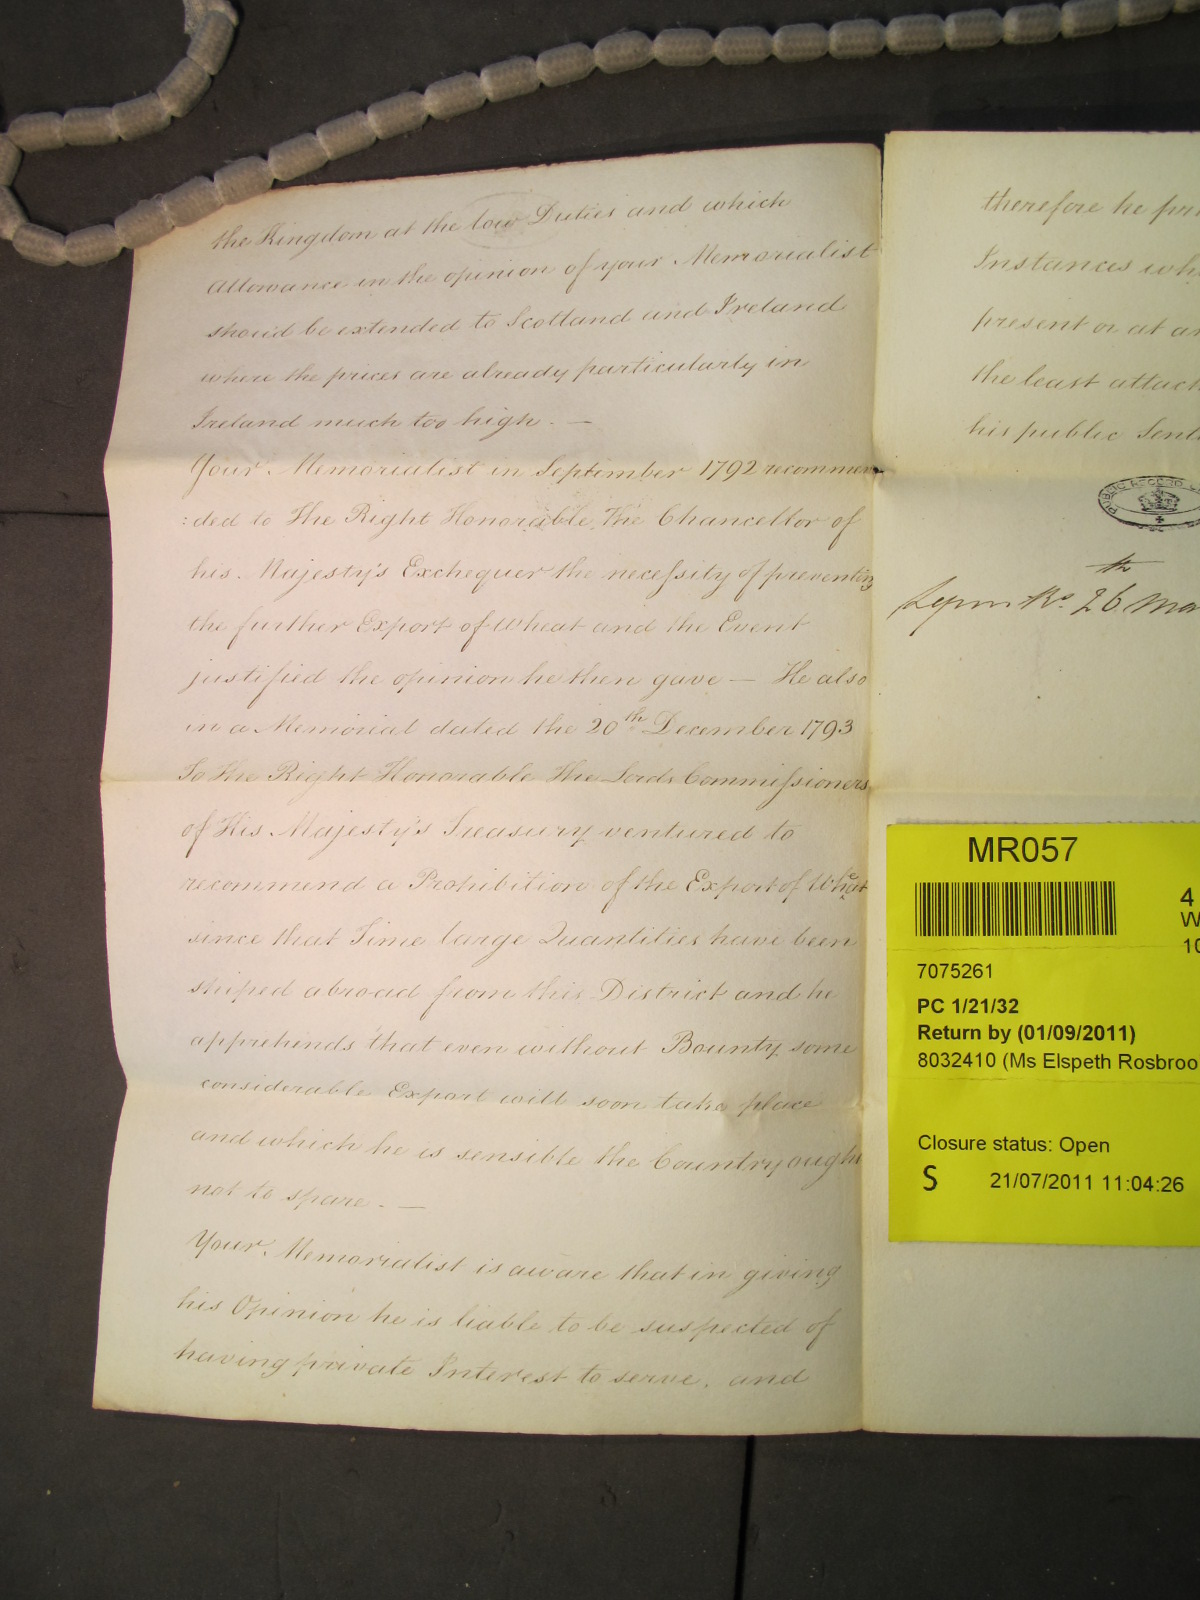 the Kingdom at the low Duties and which
Allowance in the opinion of your Memorialist
should be extended to Scotland and Ireland
where the prices are already particularly in
Ireland much too high. —
Your Memorialist in September 1792 recommen
:ded to The Right Honorable The Chancellor of
his Majesty's Exchequer the necessity of preventing
the further Export of Wheat and the Event
justified the opinion he then gave — He also
in a Memorial dated the 20th December 1793
To The Right Honorable The Lords Commissioners
of His Majesty's Treasury ventured to
recommend a Prohibition of the Export of Wheat
since that Time large Quantities have been
shiped abroad from this District and he
apprehends that even without Bounty some
considerable Export will soon take place
and which he is sensible the Country ought
not to spare. —
Your Memorialist is aware that in giving
his Opinion he is liable to be suspected of
having private Interest to serve, and
therefore he pr
Instances wh
present or at an
the least attach
his public Sent
PUBLIC RECORD
Lynn Rs. 26th Mar
MR057
4
W
10
7075261
PC 1/21/32
Return by (01/09/2011)
8032410 (Ms Elspeth Rosbroo
Closure status: Open
S 21/07/2011 11:04:26